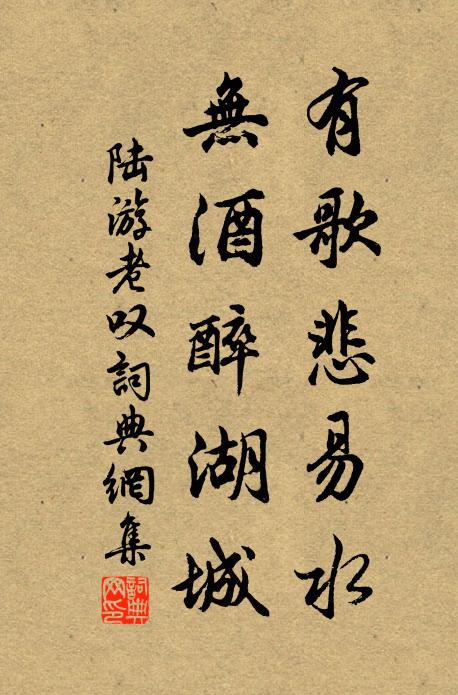 有歌悲易水
無酒醉湖城
陸游老叹詞典網集
詞典网印